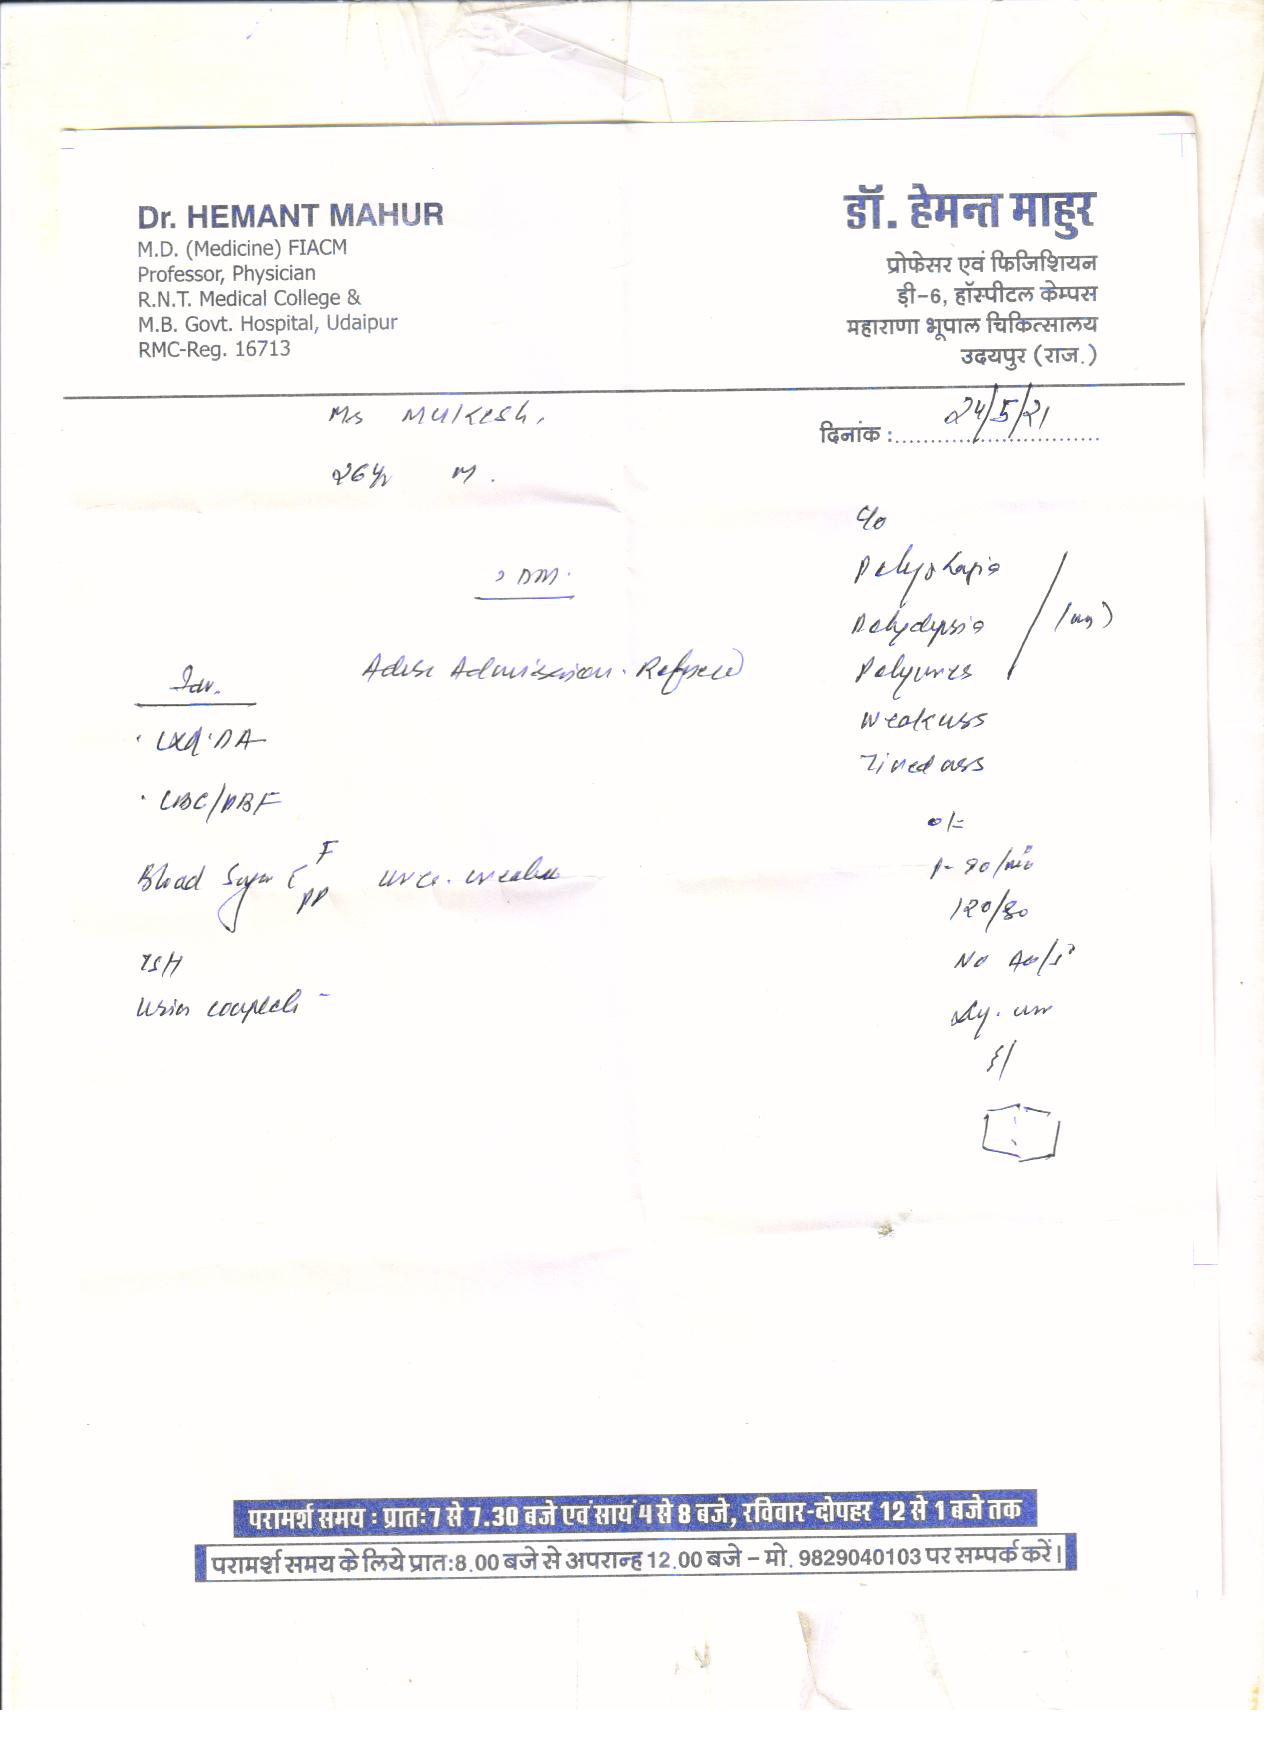 Dr. HEMANT MAHUR
M.D. (Medicine) FIACM
Professor, Physician
R.N.T. Medical College &
M.B. Govt. Hospital, Udaipur
RMC-Reg. 16713
डॉ. हेमन्त माहुर
प्रोफेसर एवं फिजिशियन
डी-6, हॉस्पीटल केम्पस
महाराणा भूपाल चिकित्सालय
उदयपुर (राज.)
Mukesh.
दिनांक : 24/5/21
26 yr M.
c/o
? DM.
Polyphagia
Polydypsia
Polyurea
Weakness
Tiredness
Advise Admission. Refused
Inv.
CXR PA
CBC/PBF
Blood Sugar F
PP
Urea. Creatin
TSH
Urine complete -
o/e
P- 90/min
120/80
No
परामर्श समय : प्रातः 7 से 7.30 बजे एवं सायं 4 से 8 बजे, रविवार-दोपहर 12 से 1 बजे तक
परामर्श समय के लिये प्रात:8.00 बजे से अपरान्ह 12.00 बजे – मो. 9829040103 पर सम्पर्क करें।